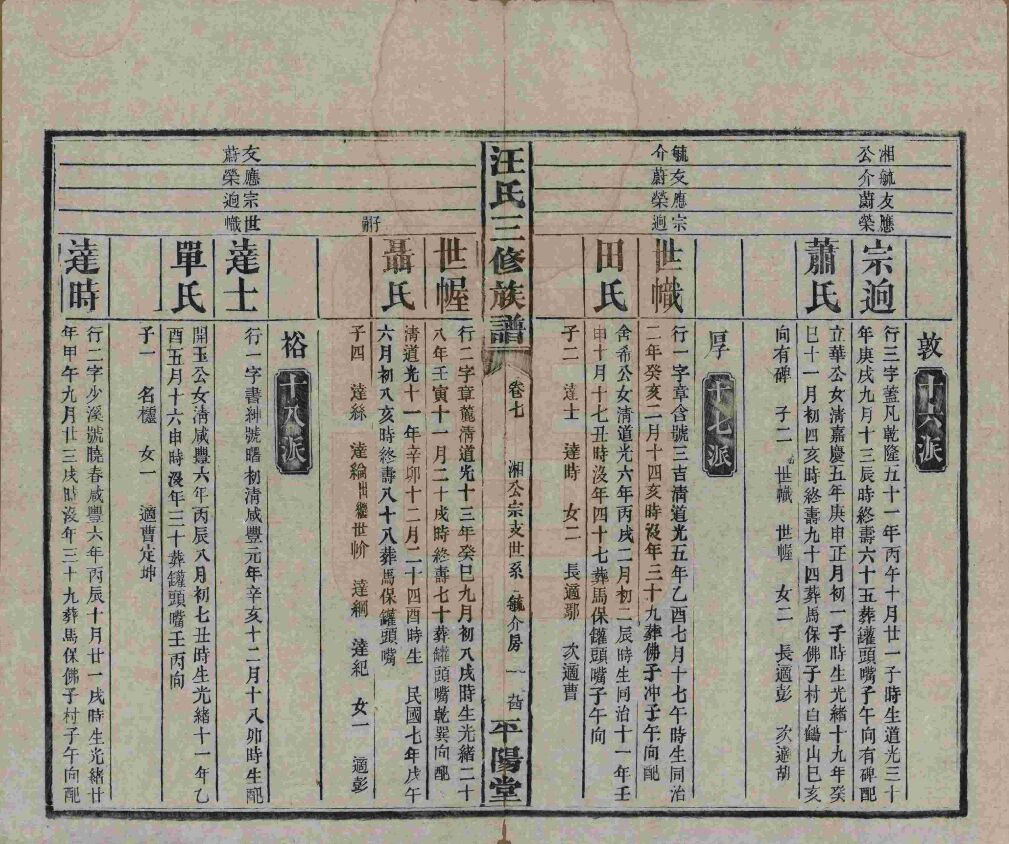 敦 十六派
湘毓友應
公介蔚榮
宗逈
行三字蓋凡乾隆五十一年丙午十月廿一子時生道光三十
年庚戌九月十三辰時終壽六十五葬罐頭嘴子午向有碑配
蕭氏
立華公女清嘉慶五年庚申正月初一子時生光緒十九年癸
巳十一月初四亥時終壽九十四葬馬保佛子村白鶴山巳亥
向有碑 子二 世幟 世幄 女二 長適彭 次適胡
厚 十七派
毓友應宗
介蔚榮逈
世幟
行一字章含號三吉清道光五年乙酉七月十七午時生同治
二年癸亥二月十四亥時沒年三十九葬佛子冲壬午向配
田氏
舍希公女清道光六年丙戌二月初二辰時生同治十一年壬
申十月十七丑時沒年四十七葬馬保罐頭嘴子午向
子二 達士 達時 女二 長適鄢 次適曹
汪氏三修族譜 卷七 湘公宗支世系 毓介房 平陽堂
世幄
行二字章龍清道光十三年癸巳九月初八戌時生光緒二十
八年壬寅十一月二十戌時終壽七十葬罐頭嘴乾巽向配
聶氏
清道光十一年辛卯十二月二十四酉時生 民國七年戊午
六月初八亥時終壽八十八葬馬保罐頭嘴
子四 達絲 達綸出繼世㡹 達綱 達紀 女一 適彭
裕 十八派
友應宗世
蔚榮逈幟
達士
行一字書紳號曙初清咸豐元年辛亥十二月十八卯時生配
單氏
開玉公女清咸豐六年丙辰八月初七丑時生光緒十一年乙
酉五月十六申時沒年三十葬罐頭嘴壬丙向
子一 名㰀 女一 適曹定坤
達時
行二字少溪號曉春咸豐六年丙辰十月廿一戌時生光緒廿
年甲午九月廿三戌時沒年三十九葬馬保佛子村子午向配